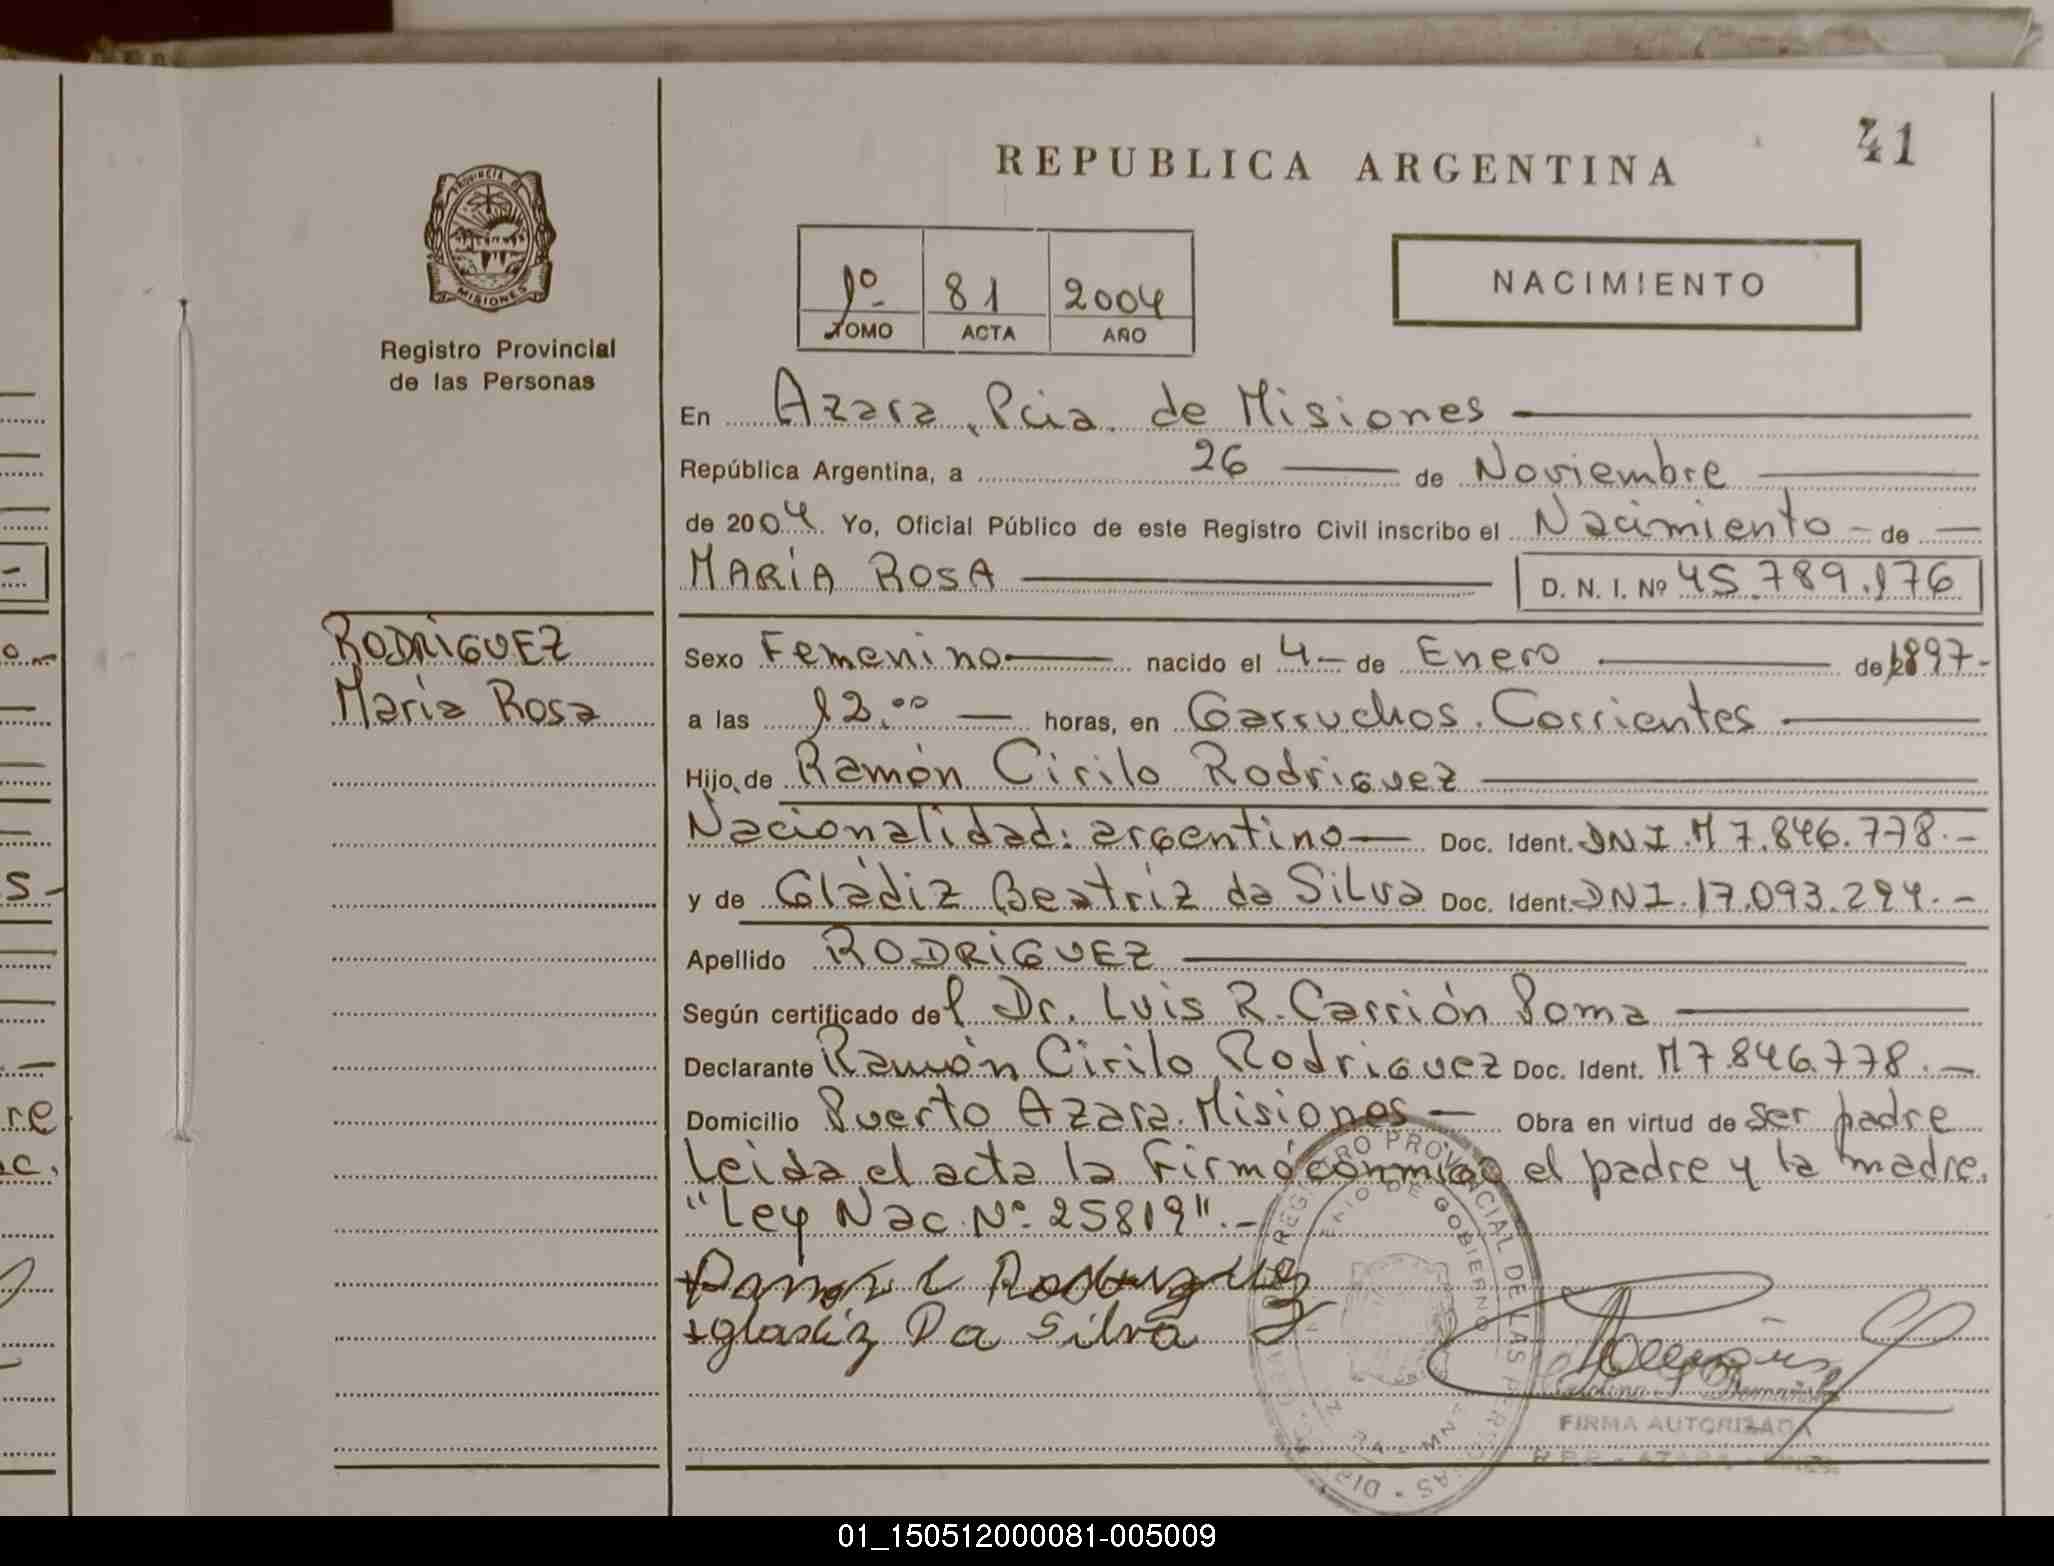 41
REPUBLICA ARGENTINA
PROVINCIA DE
MISIONES
Registro Provincial
de las Personas
1º 81 2004
TOMO ACTA AÑO
NACIMIENTO
En Azara, Pcia. de Misiones
República Argentina, a 26 de Noviembre
de 2004. Yo, Oficial Público de este Registro Civil inscribo el Nacimiento - de
MARÍA ROSA D. N. I. Nº 45.789.176
RODRIGUEZ
María Rosa
Sexo Femenino nacido el 4 - de Enero de 1897-
a las 12.00 horas, en Garruchos. Corrientes
Hijo de Ramón Cirilo Rodriguez
Nacionalidad: argentino Doc. Ident. DNI. M 7.846.778.-
y de Gládiz Beatríz da Silva Doc. Ident. DNI. 17.093.294.-
Apellido RODRIGUEZ
Según certificado del Dr. Luis R. Carrión Poma
Declarante Ramón Cirilo Rodriguez Doc. Ident. M 7.846.778.-
Domicilio Puerto Azara. Misiones - Obra en virtud de ser padre
Leida el acta la firmó conmigo el padre y la madre.
"Ley Nac. Nº 25819".-
Ramon C Rodriguez
gladiz Da Silva
REGISTRO PROVINCIAL DE LAS PERSONAS
DE GOBIERNO
FIRMA AUTORIZADA
01_150512000081-005009